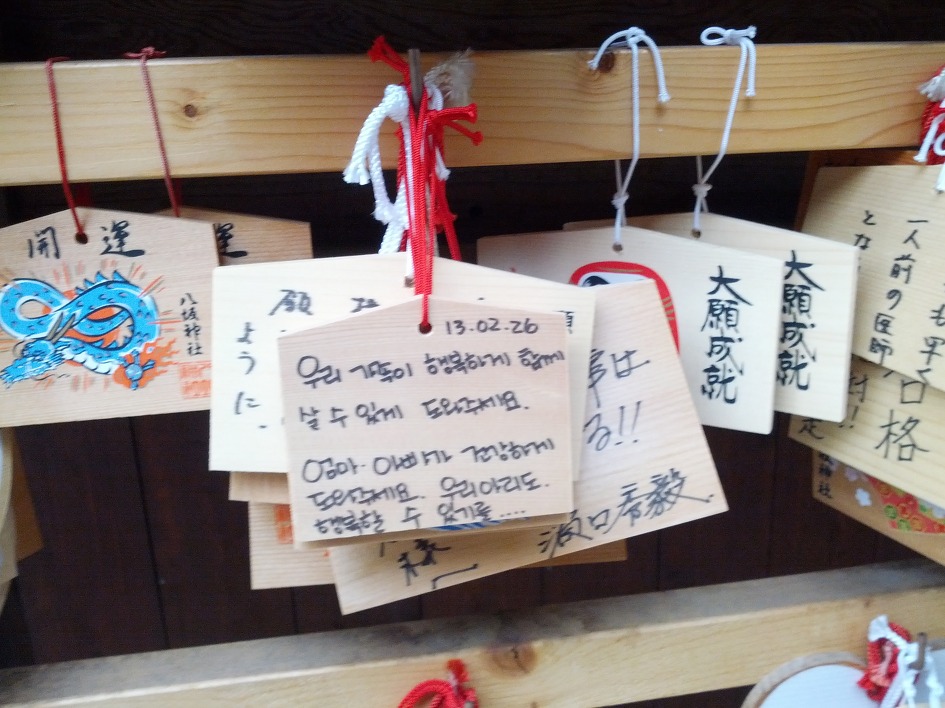 開運
八坂神社
運
願
ように
13.02.26
우리 가족이 행복하게 함께
살 수 있게 도와주세요.
엄마·아빠가 건강하게
도와주세요. 우리아리도.
행복할 수 있기를....
願
事は
る!!
大願成就
大願成就
一人前の医師
とな
合格
神社